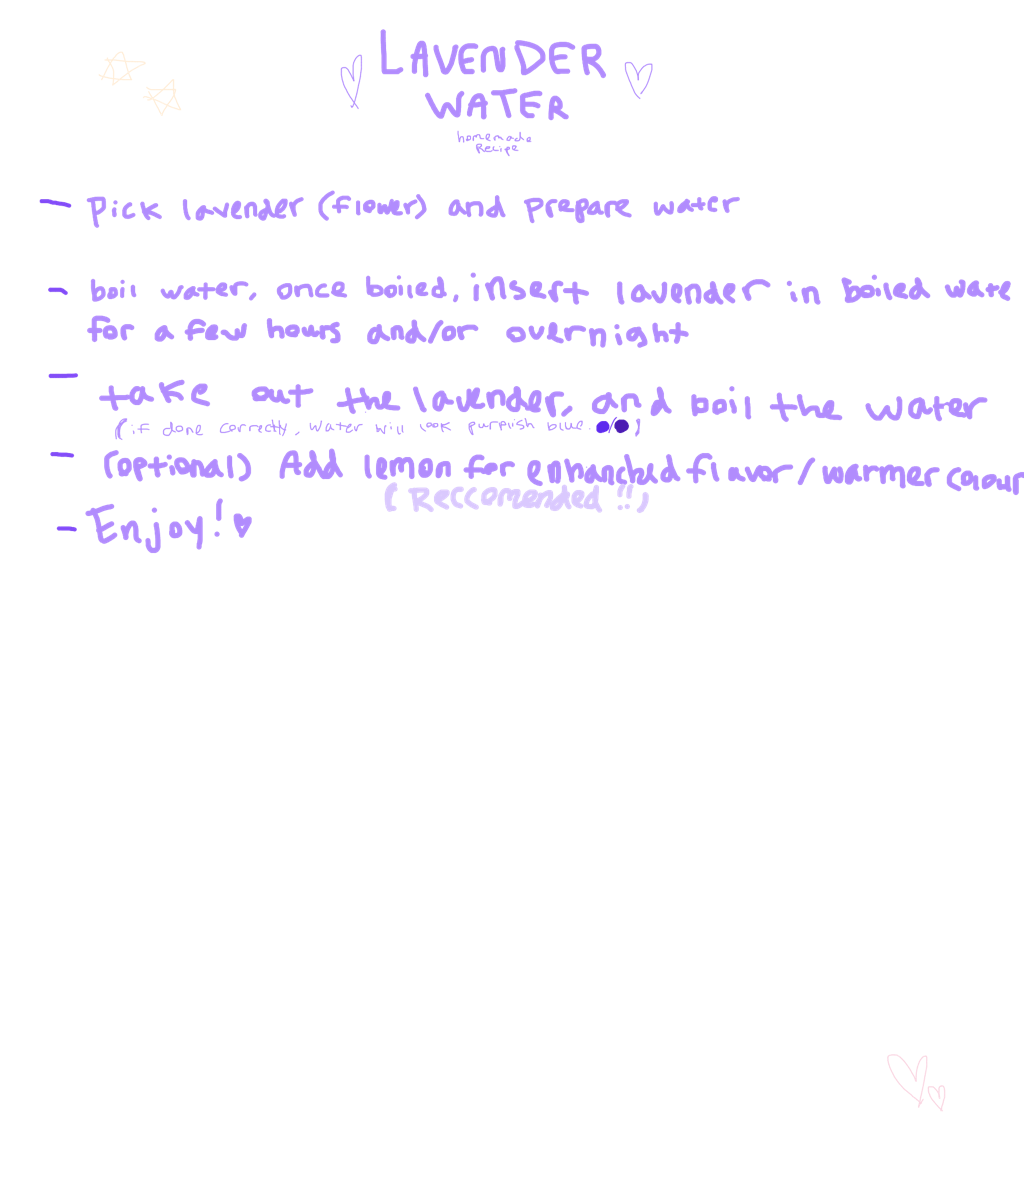 LAVENDER
WATER
homemade
Recipe
- Pick lavender (flower) and prepare water
- boil water, once boiled, insert lavender in boiled wate
for a few hours and/or overnight
- take out the lavender, and boil the water
(if done correctly, water will look purplish blue. / )
- (optional) Add lemon for enhanched flavor/warmer colour
(Reccomended!!)
- Enjoy!